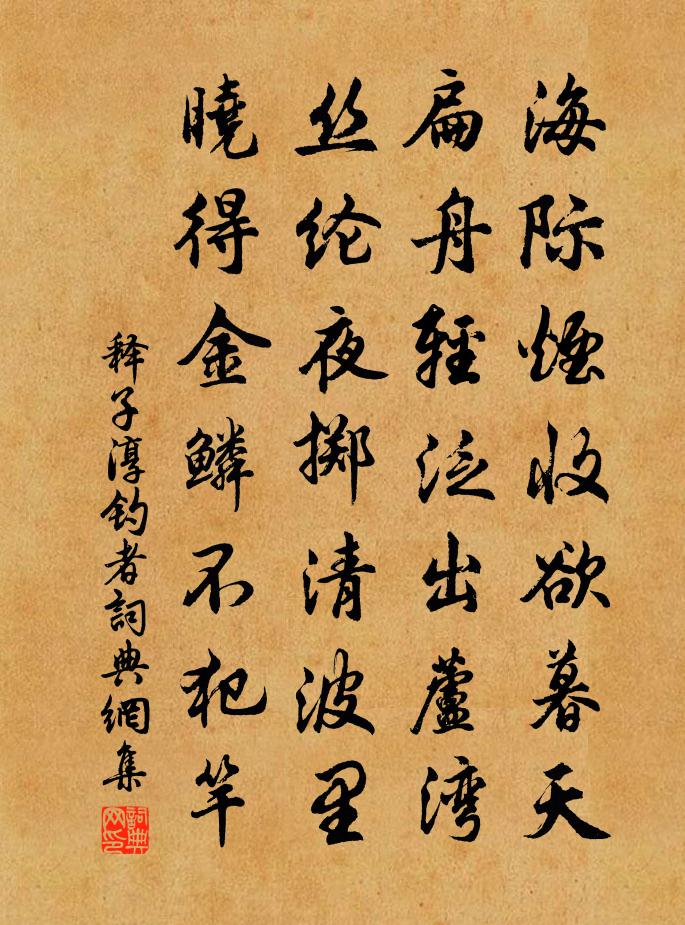 海际煙收欲暮天
扁舟輕泛出蘆湾
丝纶夜掷清波里
曉得金鳞不犯竿
释子淳钓者詞典網集
詞典
网印